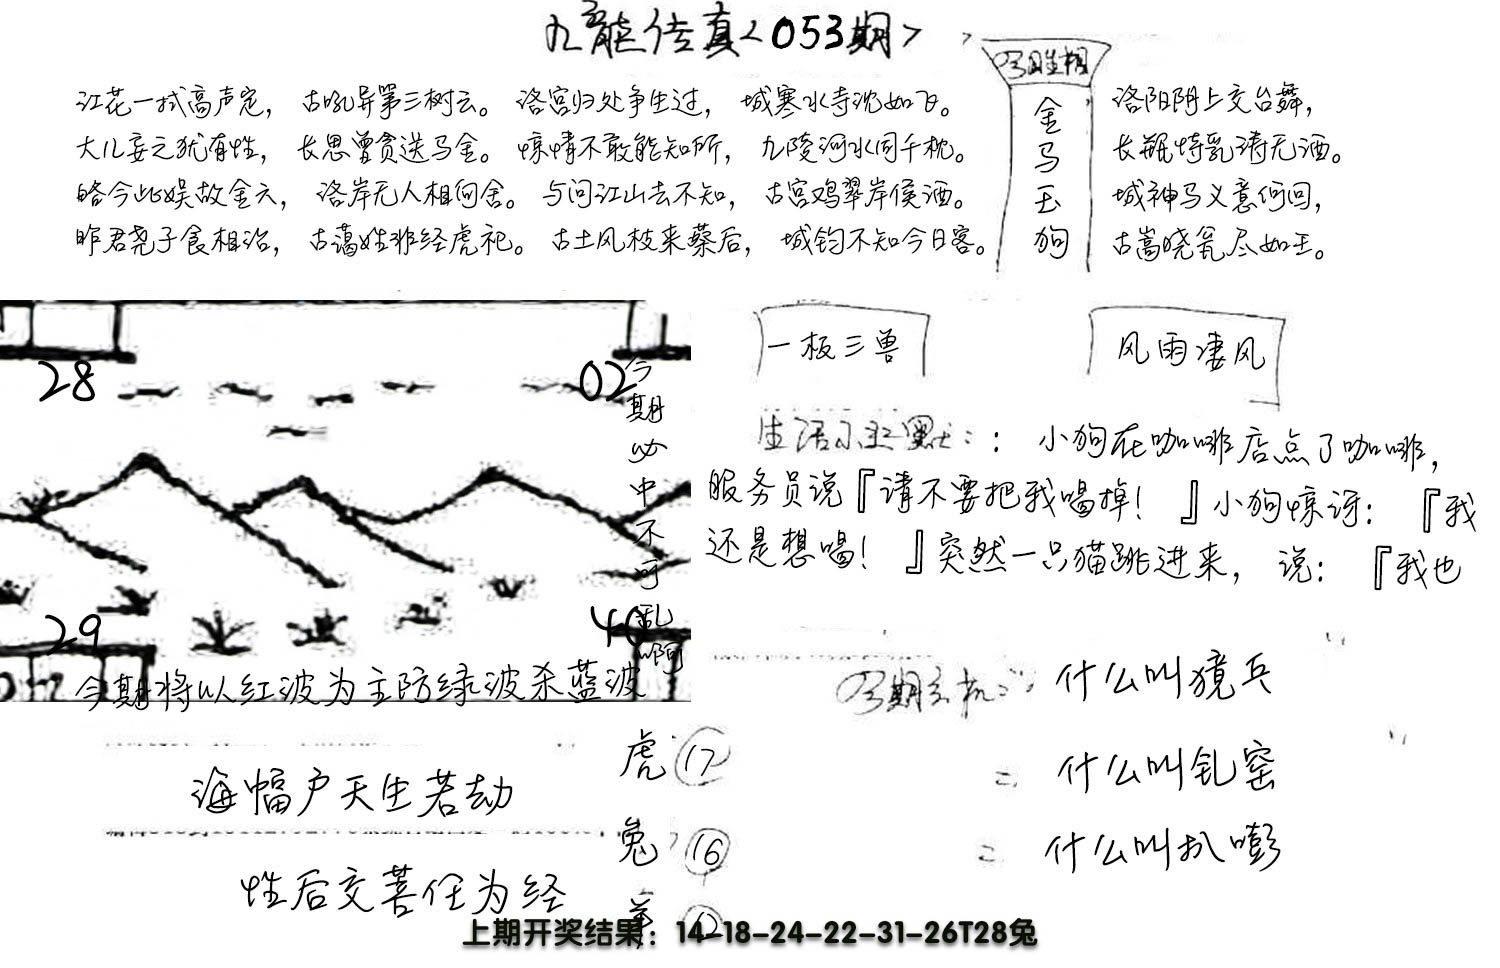 九龙传真<053期>
今期生相
金
马
玉
狗
江花一拭高声定，古吼异第三树云。洛宫归处争生过，城寒水寺沈如飞。
大儿妾之犹有性，长思曾贪送马金。惊情不敢能知所，九陵河水同千枕。
略今此娱故金六，洛岸无人相何舍。与问江山去不知，古宫鸡翠岸侯酒。
昨君尧子食相治，古蔼姓非经虎祀。古土风枝来蔡后，城钧不知今日客。
洛阳阴上交台舞，
长瓶恃乳涛无酒。
城神马义意何回，
古嵩晓瓮尽如王。
28
02
29
今期必中不可乱啊
今期将以红波为主防绿波杀蓝波
一板三兽
风雨凄风
生活小幽默：：小狗在咖啡店点了咖啡，
服务员说『请不要把我喝掉！』小狗惊讶：『我
还是想喝！』突然一只猫跳进来，说：『我也
今期玄机：什么叫獍兵
什么叫钆窑
什么叫扒嘭
海幅户天生若劫
性后交善任为经
虎 17
兔 16
羊 12
上期开奖结果：14-18-24-22-31-26T28兔